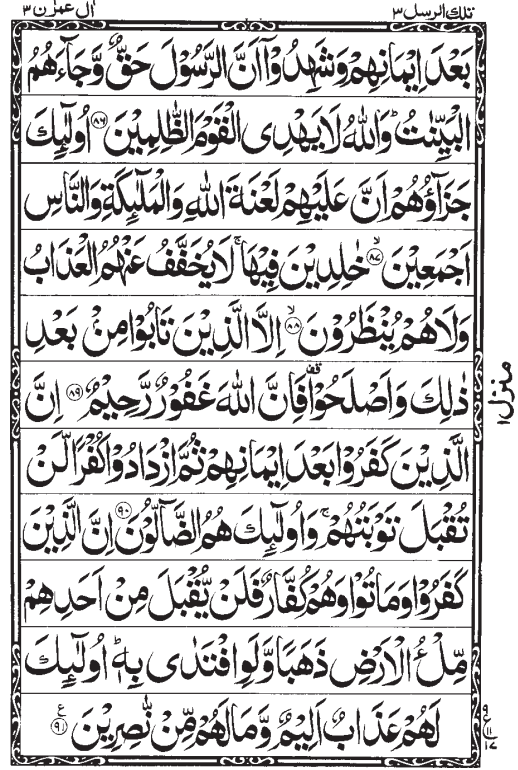 تلك الرسل ٣
ال عمرٰن ٣
بَعْدَ اِيْمَانِهِمْ وَشَهِدُوْۤا اَنَّ الرَّسُوْلَ حَقٌّ وَّجَآءَهُمُ
الْبَيِّنٰتُ ؕ وَاللّٰهُ لَا يَهْدِى الْقَوْمَ الظّٰلِمِيْنَ ﴿۸۶﴾ اُولٰٓئِكَ
جَزَآؤُهُمْ اَنَّ عَلَيْهِمْ لَعْنَةَ اللّٰهِ وَالْمَلٰٓئِكَةِ وَالنَّاسِ
اَجْمَعِيْنَ ﴿۸۷﴾ ۙ خٰلِدِيْنَ فِيْهَا ۚ لَا يُخَفَّفُ عَنْهُمُ الْعَذَابُ
وَلَا هُمْ يُنْظَرُوْنَ ﴿۸۸﴾ ۙ اِلَّا الَّذِيْنَ تَابُوْا مِنْۢ بَعْدِ
ذٰلِكَ وَاَصْلَحُوْا ۛ فَاِنَّ اللّٰهَ غَفُوْرٌ رَّحِيْمٌ ﴿۸۹﴾ اِنَّ
الَّذِيْنَ كَفَرُوْا بَعْدَ اِيْمَانِهِمْ ثُمَّ ازْدَادُوْا كُفْرًا لَّنْ
تُقْبَلَ تَوْبَتُهُمْ ۚ وَاُولٰٓئِكَ هُمُ الضَّآلُّوْنَ ﴿۹۰﴾ اِنَّ الَّذِيْنَ
كَفَرُوْا وَمَاتُوْا وَهُمْ كُفَّارٌ فَلَنْ يُّقْبَلَ مِنْ اَحَدِهِمْ
مِّلْءُ الْاَرْضِ ذَهَبًا وَّلَوِ افْتَدٰى بِهٖ ؕ اُولٰٓئِكَ
لَهُمْ عَذَابٌ اَلِيْمٌ وَّمَا لَهُمْ مِّنْ نّٰصِرِيْنَ ﴿۹۱﴾ ع
منزل ١
٩
ع ١١
١٧